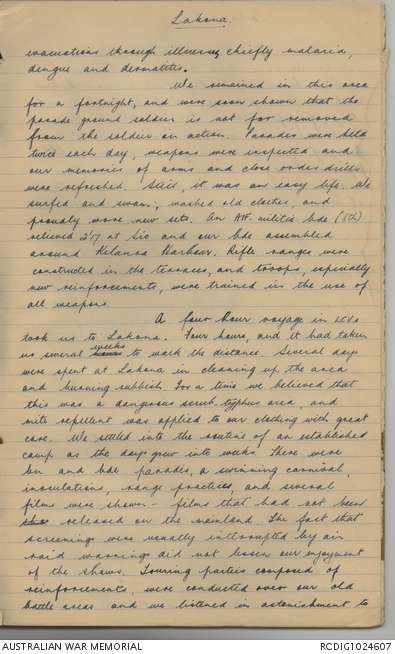 Lakona.
evacuations through illness, chiefly malaria,
dengue and dermatitis.
We remained in this area
for a fortnight, and were soon shown that the
parade ground soldier is not far removed
from the soldier in action. Parades were held
twice each day, weapons were inspected and
our memories of arms and close order drills
were refreshed. Still, it was an easy life. We
surfed and swam, washed old clothes, and
proudly wore new sets. An AMF. militia bde (8th)
relieved 2/17 at Sio and our bde assembled
around Kelanoa Harbour. Rifle ranges were
constructed in the terraces, and troops, especially
new reinforcements, were trained in the use of
all weapons.
A four hour voyage in LCVs
took us to Lakona. Four hours, and it had taken
us several weeks to walk the distance. Several days
were spent at Lakona in cleaning up the area
and burning rubbish. For a time we believed that
this was a dangerous scrub typhus area, and
mite repellent was applied to our clothing with great
care. We settled into the routine of an established
camp as the days grew into weeks. There were
bn and bde parades, a swimming carnival,
inoculations, range practices, and several
films were shown - films that had not been
released on the mainland. The fact that
screenings were usually interrupted by air
raid warnings did not lessen our enjoyment
of the shows. Touring parties composed of
reinforcements, were conducted over our old
battle areas and we listened in astonishment to
AUSTRALIAN WAR MEMORIAL
RCDIG1024607